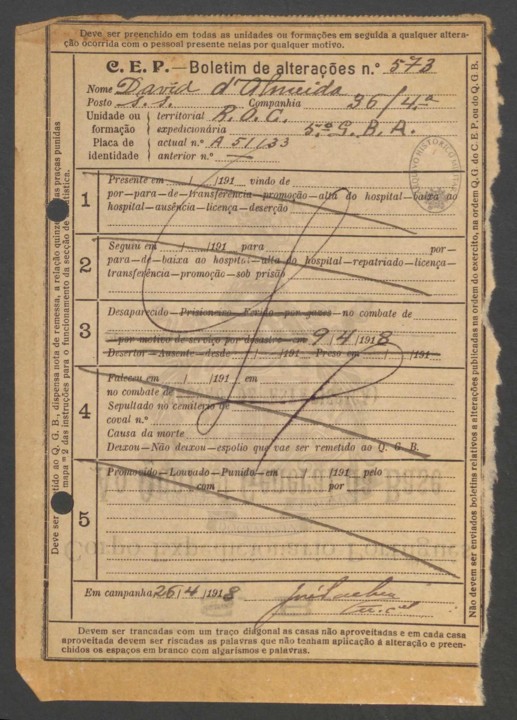 Deve ser preenchido em todas as unidades ou formações em seguida a qualquer altera-
ção ocorrida com o pessoal presente nelas por qualquer motivo.
C. E. P.—Boletim de alterações n.º 573
Nome David d'Almeida
Posto S. S. Companhia 36/4.ª
Unidade ou formação
territorial R. O. C.
expedicionária 5.º G. B. A.
Placa de identidade
actual n.º A 51/33
anterior n.º —
1
Presente em / /191 vindo de
por—para—de—transferência—promoção—alta do hospital—baixa ao
hospital—ausência—licença—deserção
2
Seguiu em / /191 para por—
para—de—baixa ao hospital—alta do hospital—repatriado—licença—
transferência—promoção—sob prisão
3
Desaparecido—Prisioneiro—Ferido—por gazes—no combate de
—por motivo de serviço por desastre em 9/4/1918
Desertor—Ausente—desde / /191 Preso em / /191
4
Faleceu em / /191 em
no combate de
Sepultado no cemitério de
coval n.º
Causa da morte
Deixou—Não deixou—espolio que vae ser remetido ao Q. G. B.
5
Promovido—Louvado—Punido—em /191 pelo
com por
Em campanha 26/4/1918
Devem ser trancadas com um traço diagonal as casas não aproveitadas e em cada casa
aproveitada devem ser riscadas as palavras que não tenham aplicação á alteração e preen-
chidos os espaços em branco com algarismos e palavras.
Não devem ser enviados boletins relativos a alterações publicadas na ordem do exercito, na ordem Q.G. do C. E. P. ou do Q. G. B.
ARQUIVO HISTÓRICO MILITAR